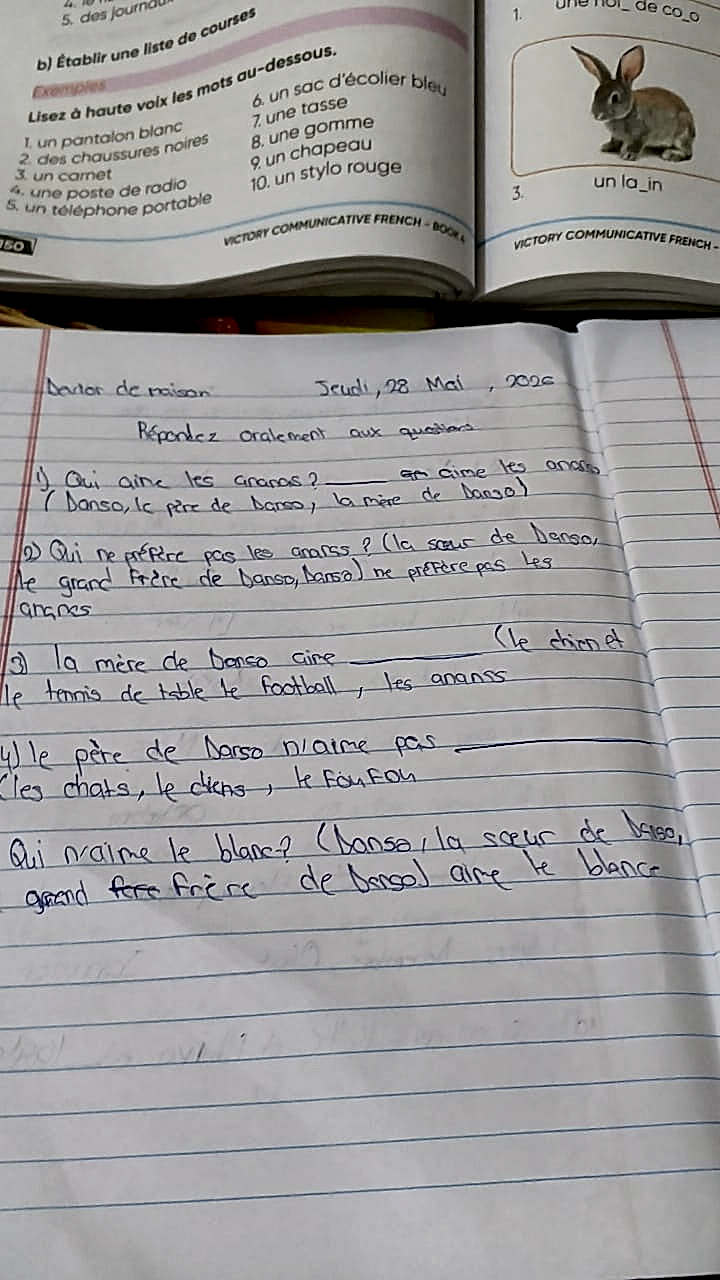 5. des journau
b) Établir une liste de courses
Exemples
Lisez à haute voix les mots au-dessous.
1. un pantalon blanc
2. des chaussures noires
3. un carnet
4. une poste de radio
5. un téléphone portable
6. un sac d'écolier bleu
7. une tasse
8. une gomme
9. un chapeau
10. un stylo rouge
150
VICTORY COMMUNICATIVE FRENCH - BOOK 4
1. une noi_ de co_o
3. un la_in
VICTORY COMMUNICATIVE FRENCH -
Devior de maison Jeudi, 28 Mai, 2026
Répondez oralement aux questions
1) Qui aime les ananas? ____ aime les ananas
(Danso, le père de Danso, la mère de Danso)
2) Qui ne préfère pas les ananas? (la sœur de Danso,
le grand Frère de Danso, Danso) ne préfère pas les
ananes
3) la mère de Danso aime ________ (le chien et
le tennis de table le football, les ananss
4) le père de Danso n'aime pas ________
(les chats, le chens, le FouFou
Qui n'aime le blanc? (Danso, la sœur de Danso,
grand frère de Danso) aime le blance